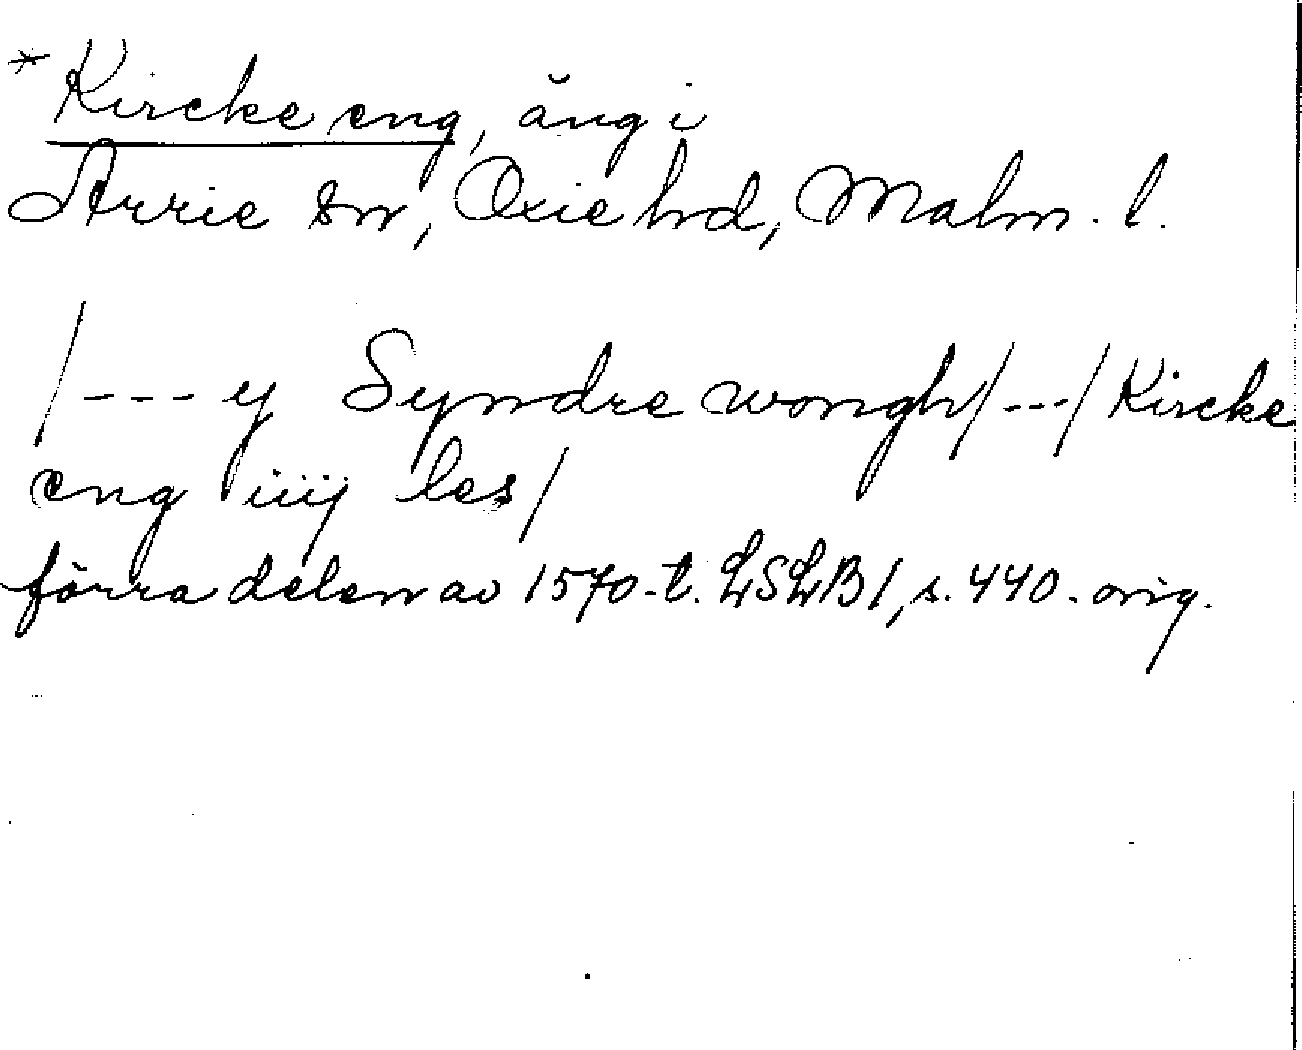 *Kircke eng, äng i
Arrie sn, Oxie hd, Malm. l.
/---y Syndre wongh/---/Kircke
eng iiij les/
förra delen av 1570-t. LSLB1, s. 440. orig.